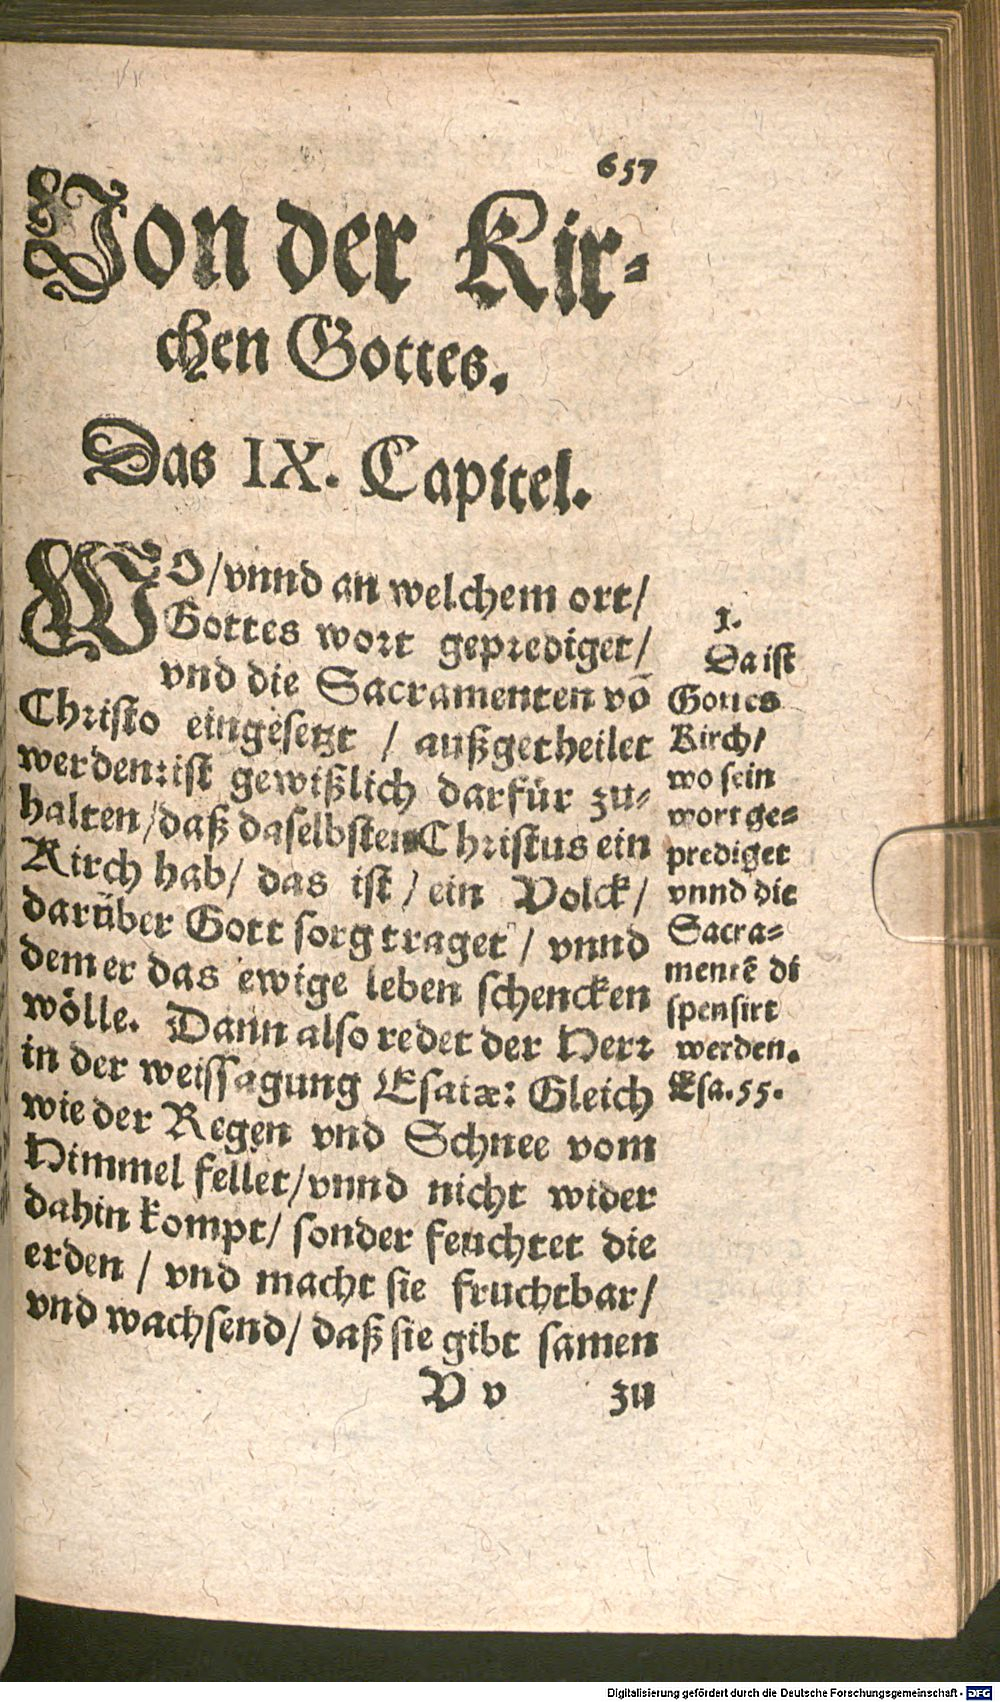 657
Von der Kir-
chen Gottes.
Das IX. Capitel.
WO/vnnd an welchem ort/
Gottes wort geprediget/
vnd die Sacramenten võ
Christo eingesetzt / außgetheilet
werden: ist gewißlich darfür zu-
halten/daß daselbsten Christus ein
Kirch hab/ das ist / ein Volck/
darüber Gott sorg traget / vnnd
dem er das ewige leben schencken
wölle. Dann also redet der Herr
in der weissagung Esaiæ: Gleich
wie der Regen vnd Schnee vom
Himmel fellet/vnnd nicht wider
dahin kompt/ sonder feuchtet die
erden / vnd macht sie fruchtbar/
vnd wachsend/ daß sie gibt samen
V v zu
1.
Da ist
Gottes
Kirch/
wo sein
wort ge-
prediget
vnnd die
Sacra-
mentẽ di
spensirt
werden.
Esa. 55.
Digitalisierung gefördert durch die Deutsche Forschungsgemeinschaft - DFG